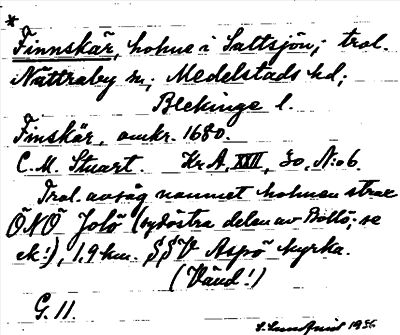 *
Finnskär, holme i Saltsjön; trol.
Nättraby sn; Medelstads hd;
Blekinge l.
Finskär, omkr. 1680.
C. M. Stuart. Kr.A. XXII, 30, N:o 6.
Trol. avsåg namnet holmen strax
ÖNÖ Jolö (sydöstra delen av Bollö; se
ek.!), 1,9 km. SSV Aspö kyrka.
(Vänd!)
G. 11.
1936